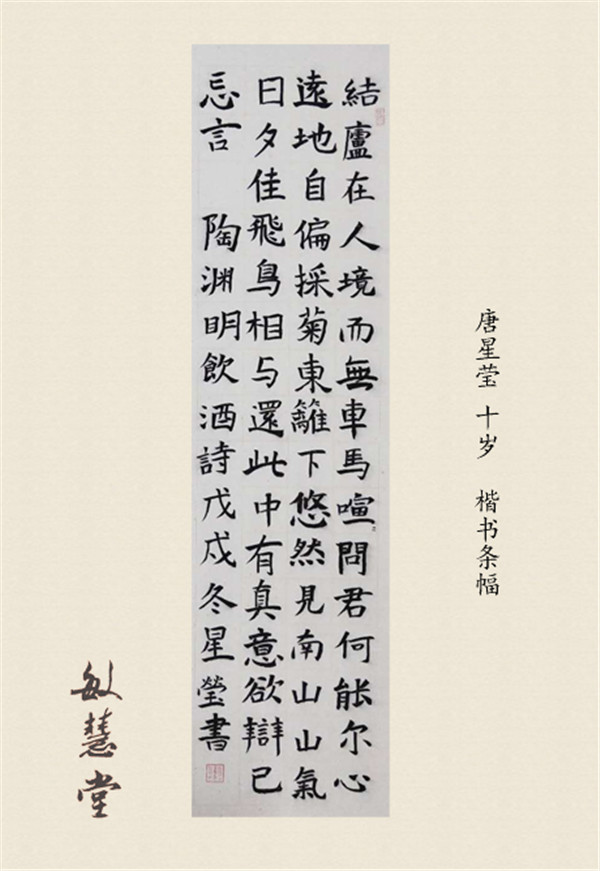 唐星莹 十岁 楷书条幅
結廬在人境而無車馬喧問君何能尔心
遠地自偏採菊東籬下悠然見南山山氣
日夕佳飛鳥相与還此中有真意欲辯已
忘言 陶渊明飲酒詩戊戌冬星瑩書
敏慧堂